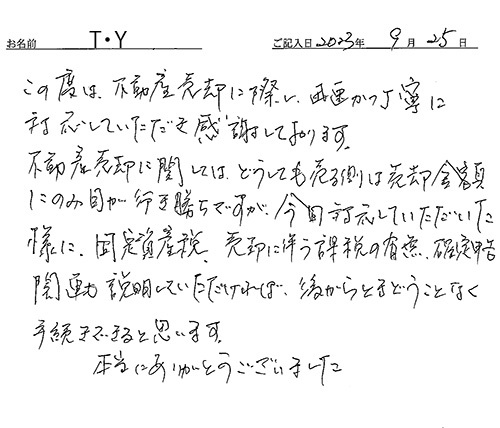 お名前 T・Y ご記入日 2023年 9月 25日
この度は、不動産売却に際し、迅速かつ丁寧に
対応していただき感謝しております。
不動産売却に関しては、どうしても売る側は売却金額
にのみ目が行き勝ちですが、今回対応していただいた
様に、固定資産税、売却に伴う課税の有無、確定申告
関連も説明していただければ、後からとまどうことなく
手続きできると思います。
本当にありがとうございました